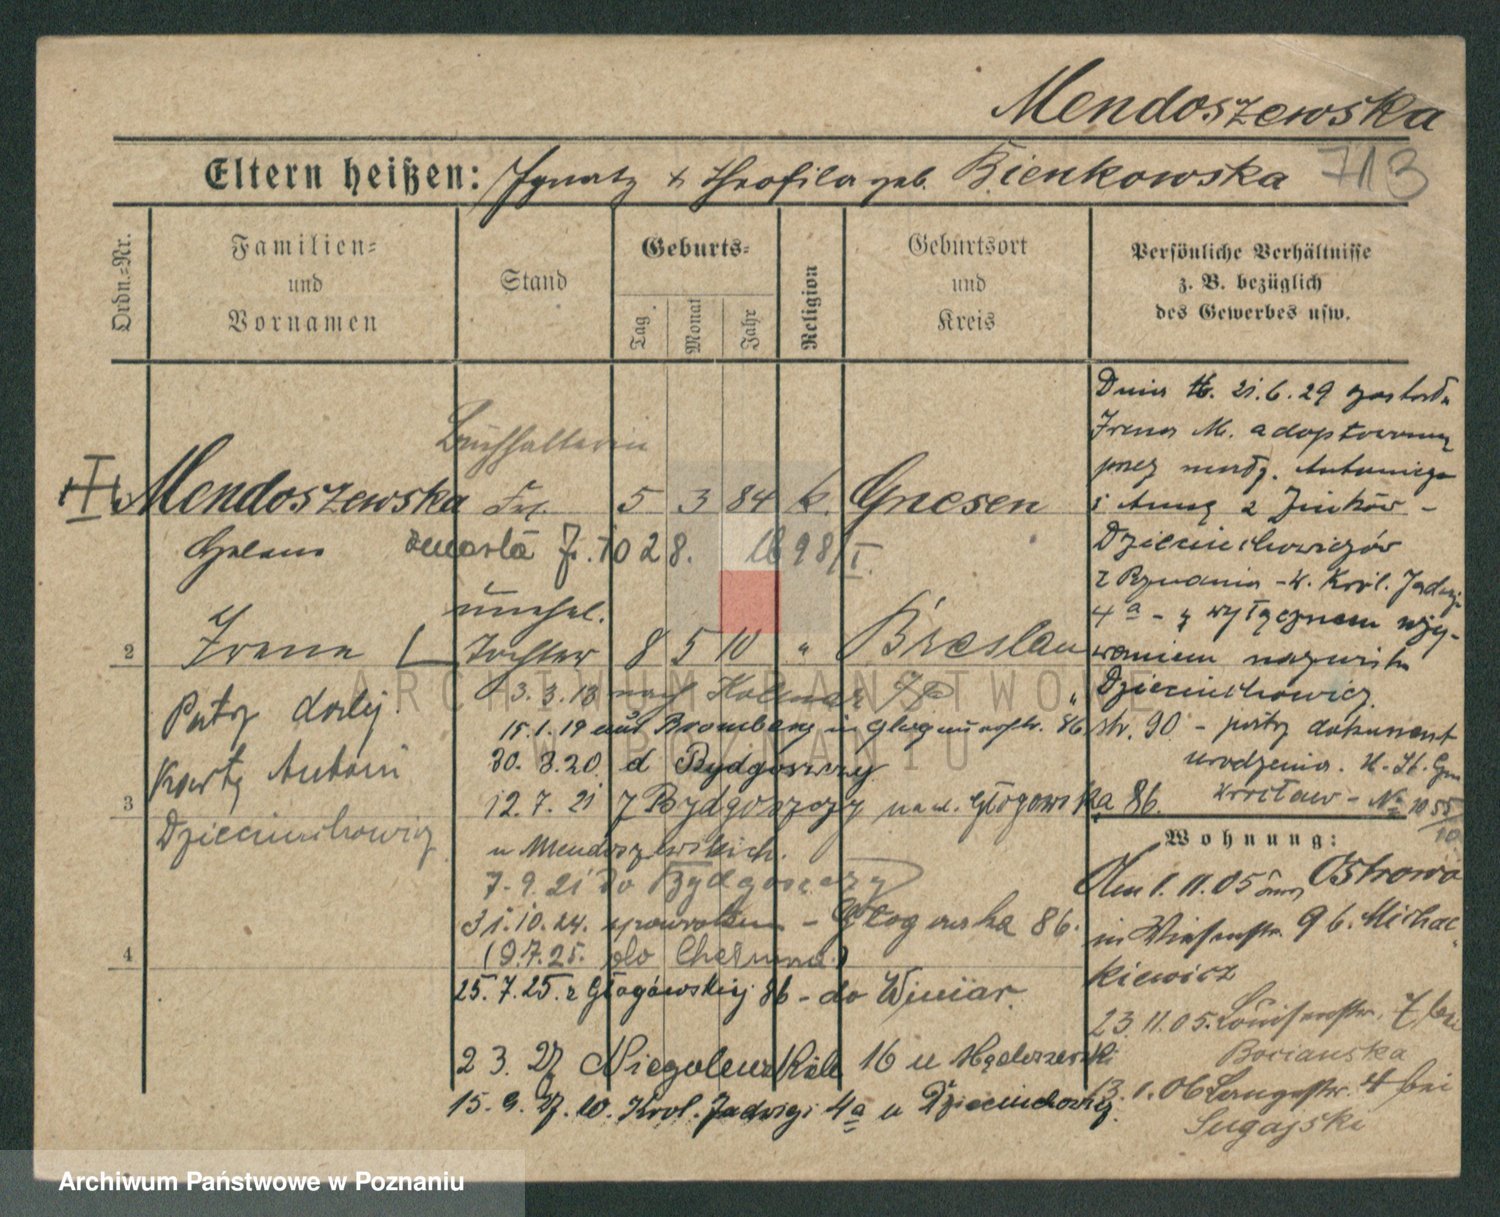 Mendoszewska
713
Eltern heißen: Ignatz & Theofila geb. Bienkowska
Ordn.-Nr.
Familien- und Vornamen
Stand
Geburts-
Tag
Monat
Jahr
Religion
Geburtsort und Kreis
Persönliche Verhältnisse
z. B. bezüglich
des Gewerbes usw.
Buchhalterin
Mendoszewska Frl. 5 3 84 k. Gnesen
Helene
zmarła 10 28. 1898/I.
unehel.
2 Irene Tochter 8 5 10 " Breslau
3.3.13 nach Kolmar
Patrz dalej
15.1.19 aus Bromberg in Glogauerstr. 86
30.3.20 d Bydgoszczy
kartę Antoni
3 12.7.21 z Bydgoszczy Głogowska 86.
Dzieciuchowicz
u Mendoszewskich.
7.9.21 do Bydgoszczy
31.10.24. - Głogowska 86.
4 (9.7.25. do Chełmna)
25.7.25. z Głogowskiej 86 - do Winiar.
2 3. 27 Niegolewskich 16 u
15.9.27. Król. Jadwigi 4a u Dzieciuchowicz
Dnia 21.6.29 została
Irena M. adoptowaną
przez małż. Antoniego
i Annę z
Dzieciuchowiczów
z Poznania - Król. Jadwigi
4a - z wyłącznem uży-
waniem nazwiska
Dzieciuchowicz
str. 90 - patrz dokument
urodzenia.
Wrocław - Nr 1055/10
Wohnung:
Am 1.11.05 aus Ostrowo
in Wiesenstr. 9 b. Michal-
kiewicz
23.11.05. Louisenstr. 7 bei
Bocianska
13.1.06 Langestr. 4 bei
Sugajski
ARCHIWUM PAŃSTWOWE
W POZNANIU
Archiwum Państwowe w Poznaniu